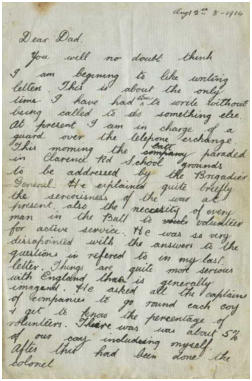 Aug 8th 8-1914
Dear Dad.
You will no doubt think
I am begining to like writing
letters. This is about the only
time I have had time to write without
being called to do something else
At present I am in charge of a
guard over the telephone exchange
This morning the batt company paraded
in Clarence Rd School grounds
to be addressed by the Brigadier
General. He explained quite briefly
the seriousness of the war as
present, also the necessity of every
man in the Batt to volunteer
for active service. He was so very
dissapointed with the answers to the
questions in refered to in my last
letter. Things are quite most serious
with England than is generally
imagined. He asked all the captains
of companies to go round each coy
& get to know the percentage of
volunteers. There was about 5%
of our coy includeing myself
After this had been done the
Colonel